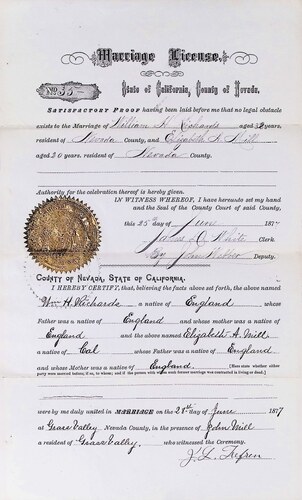 Marriage License.
No. 35
State of California, County of Nevada.
SATISFACTORY PROOF having been laid before me that no legal obstacle
exists to the Marriage of William H. Richards aged
resident of Nevada County, and Elizabeth A. Mill
aged 20 years. resident of Nevada County.
Authority for the celebration thereof is hereby given.
IN WITNESS WHEREOF, I have hereunto set my hand
and the Seal of the County Court of said County,
this 25th day of June 187
James D. White Clerk
By John Deputy.
COUNTY OF NEVADA, STATE OF CALIFORNIA.
I HEREBY CERTIFY, that, believing the facts above set forth, the above named
Wm H. Richards a native of England whose
Father was a native of England and whose mother was a native of
England and the above named Elizabeth A. Mill
a native of Cal whose Father was a native of England
and whose Mother was a native of England [Here state whether either
party were married before; if so, to whom; and if the person with whom such former marriage was contracted is living or dead.]
were by me duly united in MARRIAGE on the 28th day of June 1877
at Grass Valley, Nevada County, in the presence of John Mill
a resident of Grass Valley, who witnessed the Ceremony.
J. L. Trefren